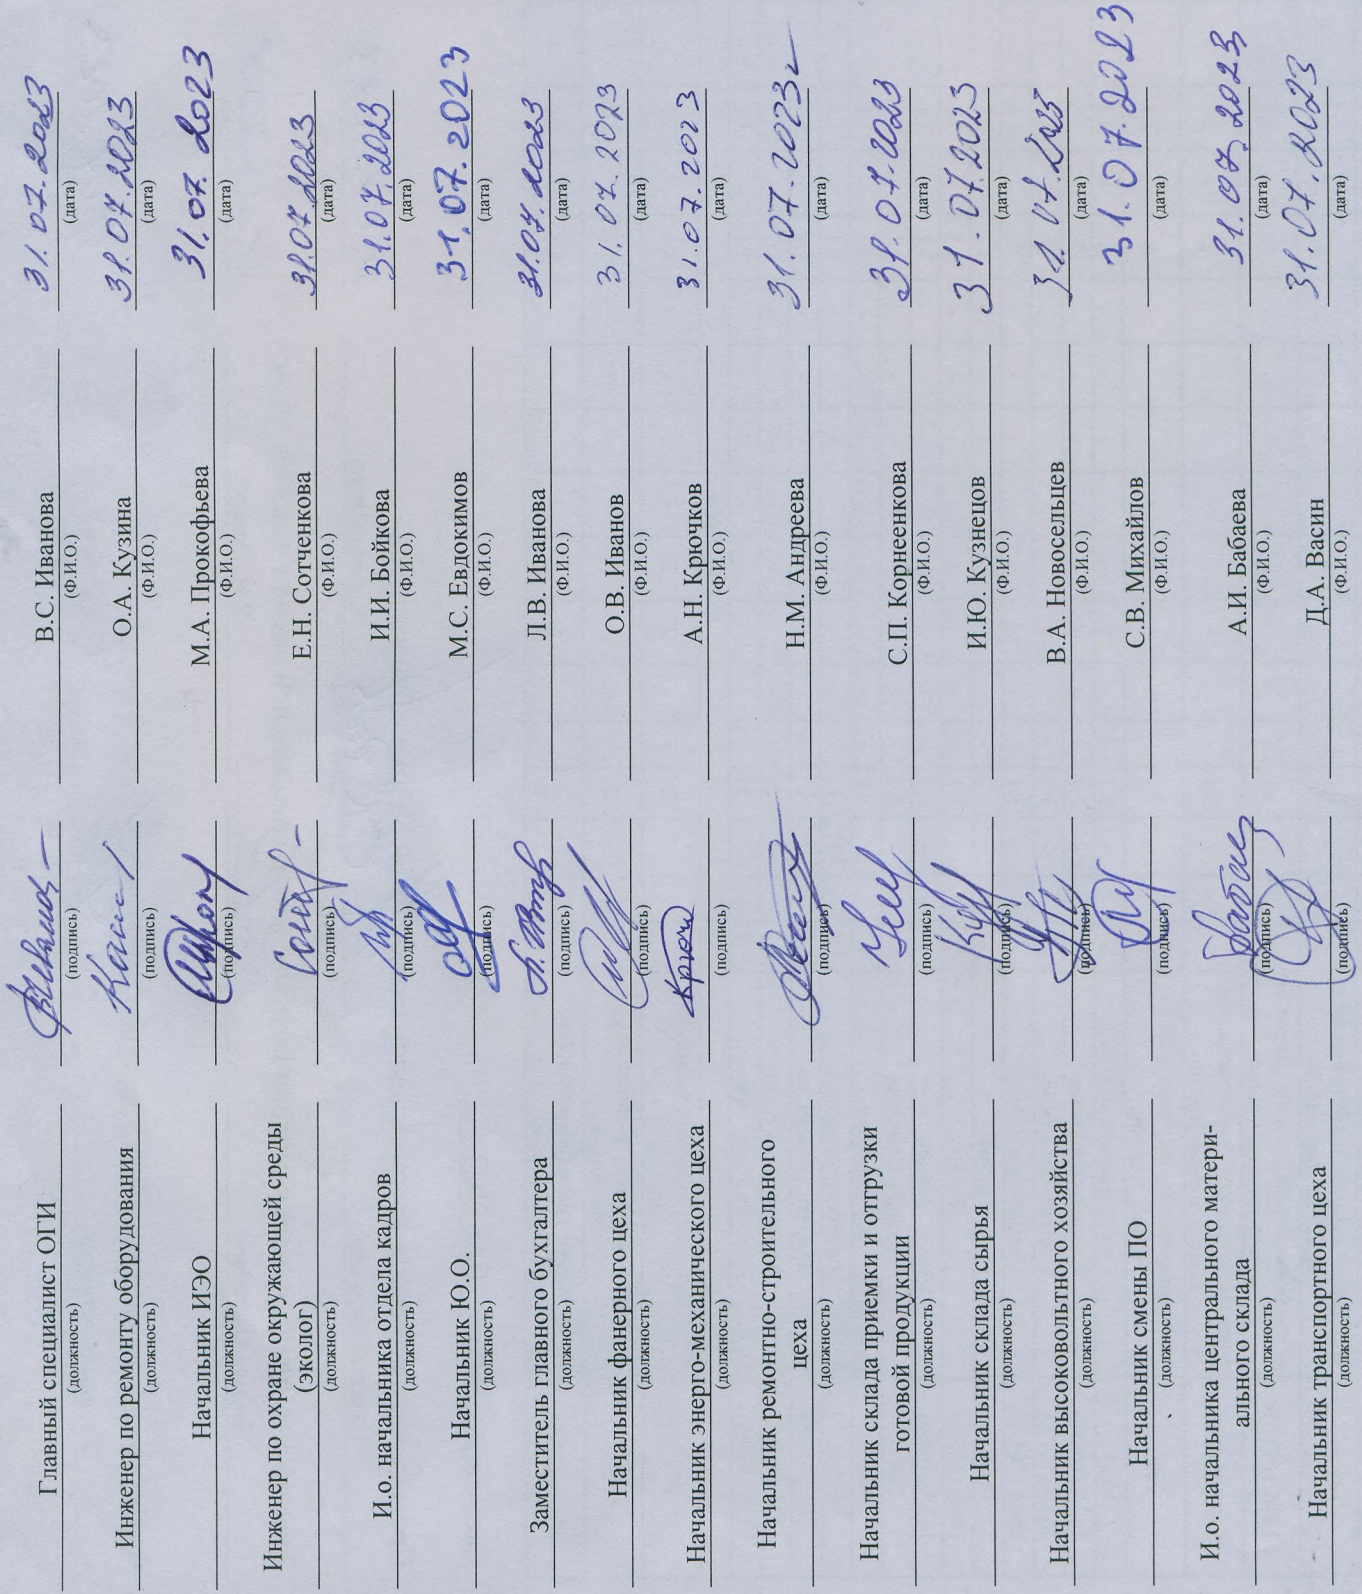 Главный специалист ОГИ В.С. Иванова 31.07.2023
(должность) (подпись) (Ф.И.О.) (дата)
Инженер по ремонту оборудования О.А. Кузина 31.07.2023
(должность) (подпись) (Ф.И.О.) (дата)
Начальник ИЭО М.А. Прокофьева 31.07.2023
(должность) (подпись) (Ф.И.О.) (дата)
Инженер по охране окружающей среды
(эколог) Е.Н. Сотченкова 31.07.2023
(должность) (подпись) (Ф.И.О.) (дата)
И.о. начальника отдела кадров И.И. Бойкова 31.07.2023
(должность) (подпись) (Ф.И.О.) (дата)
Начальник Ю.О. М.С. Евдокимов 31.07.2023
(должность) (подпись) (Ф.И.О.) (дата)
Заместитель главного бухгалтера Л.В. Иванова 31.07.2023
(должность) (подпись) (Ф.И.О.) (дата)
Начальник фанерного цеха О.В. Иванов 31.07.2023
(должность) (подпись) (Ф.И.О.) (дата)
Начальник энерго-механического цеха А.Н. Крючков 31.07.2023
(должность) (подпись) (Ф.И.О.) (дата)
Начальник ремонтно-строительного
цеха Н.М. Андреева 31.07.2023г
(должность) (подпись) (Ф.И.О.) (дата)
Начальник склада приемки и отгрузки
готовой продукции С.П. Корнеенкова 31.07.2023
(должность) (подпись) (Ф.И.О.) (дата)
Начальник склада сырья И.Ю. Кузнецов 31.07.2023
(должность) (подпись) (Ф.И.О.) (дата)
Начальник высоковольтного хозяйства В.А. Новосельцев 31.07.2023
(должность) (подпись) (Ф.И.О.) (дата)
Начальник смены ПО С.В. Михайлов 31.07.2023
(должность) (подпись) (Ф.И.О.) (дата)
И.о. начальника центрального матери-
ального склада А.И. Бабаева 31.07.2023
(должность) (подпись) (Ф.И.О.) (дата)
Начальник транспортного цеха Д.А. Васин 31.07.2023
(должность) (подпись) (Ф.И.О.) (дата)